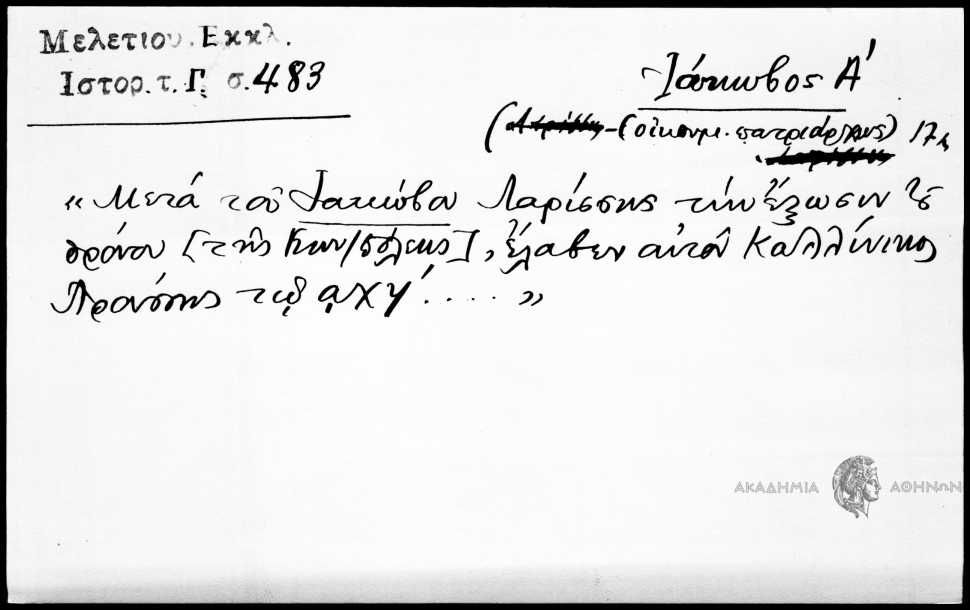 Μελετιου. Εκκλ.
Ιστορ. τ. Γ. σ. 483
Ἰάκωβος Α'
(οἰκουμ. πατριάρχης) 17
« Μετά τοῦ Ἰακώβου Λαρίσσης τήν ἔξωσιν ἐκ
θρόνου [τῆς Κων/πόλεως], ἔλαβεν αὐτόν Καλλίνικος
Προύσης τῷ αχ ..... »
ΑΚΑΔΗΜΙΑ ΑΘΗΝΩΝ